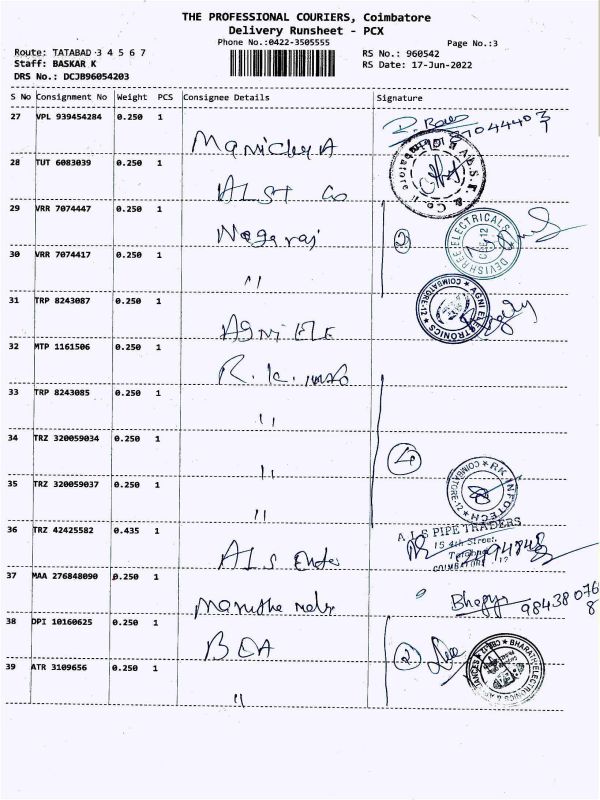 THE PROFESSIONAL COURIERS, Coimbatore
Delivery Runsheet - PCX
Phone No.:0422-3505555
Page No.:3
Route: TATABAD 3 4 5 6 7
RS No.: 960542
Staff: BASKAR K
RS Date: 17-Jun-2022
DRS No.: DCJB96054203
S No Consignment No Weight PCS Consignee Details Signature
27 VPL 939454284 0.250 1
28 TUT 6083039 0.250 1
29 VRR 7074447 0.250 1 Nagaraj
② ELECTRICALS DEVISHREE
30 VRR 7074417 0.250 1 "
31 TRP 8243087 0.250 1 AGNI ELE
AGNI ELECTRONICS COIMBATORE-12
32 MTP 1161506 0.250 1 R.K. info
33 TRP 8243085 0.250 1 "
34 TRZ 320059034 0.250 1 "
④
35 TRZ 320059037 0.250 1 "
RK INFOTECH COIMBATORE-12
36 TRZ 42425582 0.435 1 ALS
A L S PIPE TRADERS
15 4th Street,
COIMBATORE - 12
37 MAA 276848090 0.250 1
Bhagya 98438076
8
38 DPI 10160625 0.250 1 BEA
②
39 ATR 3109656 0.250 1 "
BHARATH ELECTRONICS &